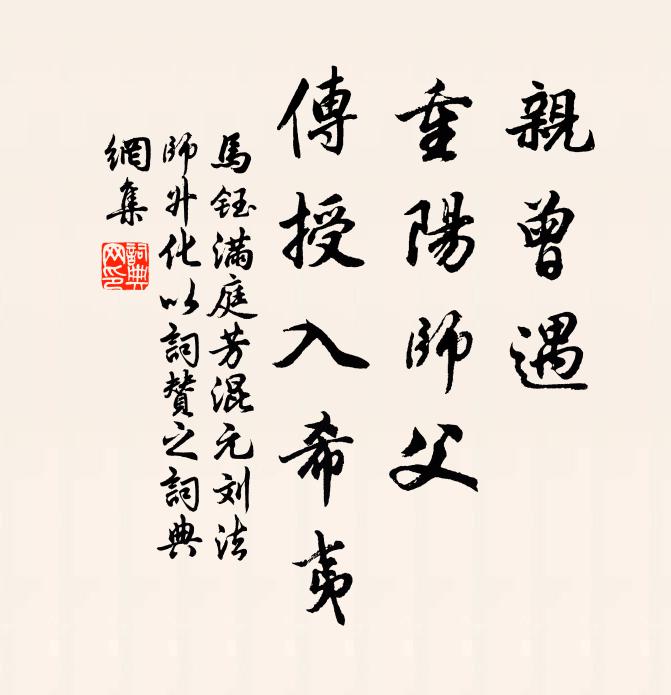 親曾遇
重陽師父
傳授入希夷
馬鈺滿庭芳混元刘法
師升化以詞贊之詞典
網集
詞典
网印